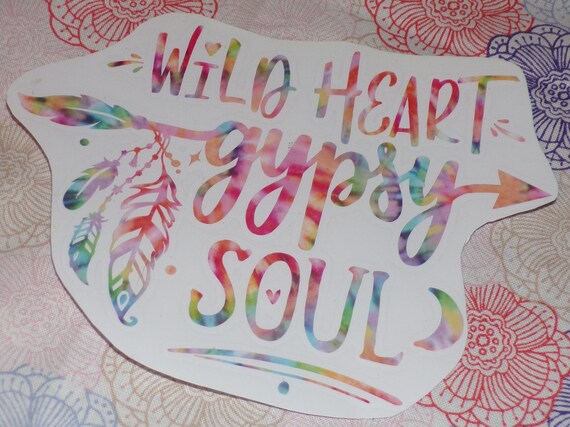 WiLD HEART
gypsy
SOUL